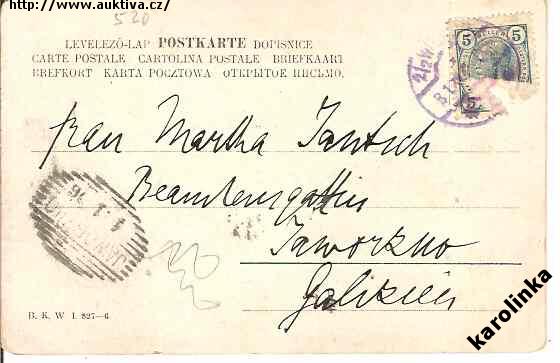 http://www.auktiva.cz/
520
LEVELEZŐ-LAP POSTKARTE DOPISNICE
CARTE POSTALE CARTOLINA POSTALE BRIEFKAART
BREFKORT KARTA POCZTOWA ОТКРЫТОЕ ПИСЬМО.
5 5
Frau Martha Jantsch
Beamtensgattin
Jaworzno
Galizien
B. K. W. I. 827—6
karolinka